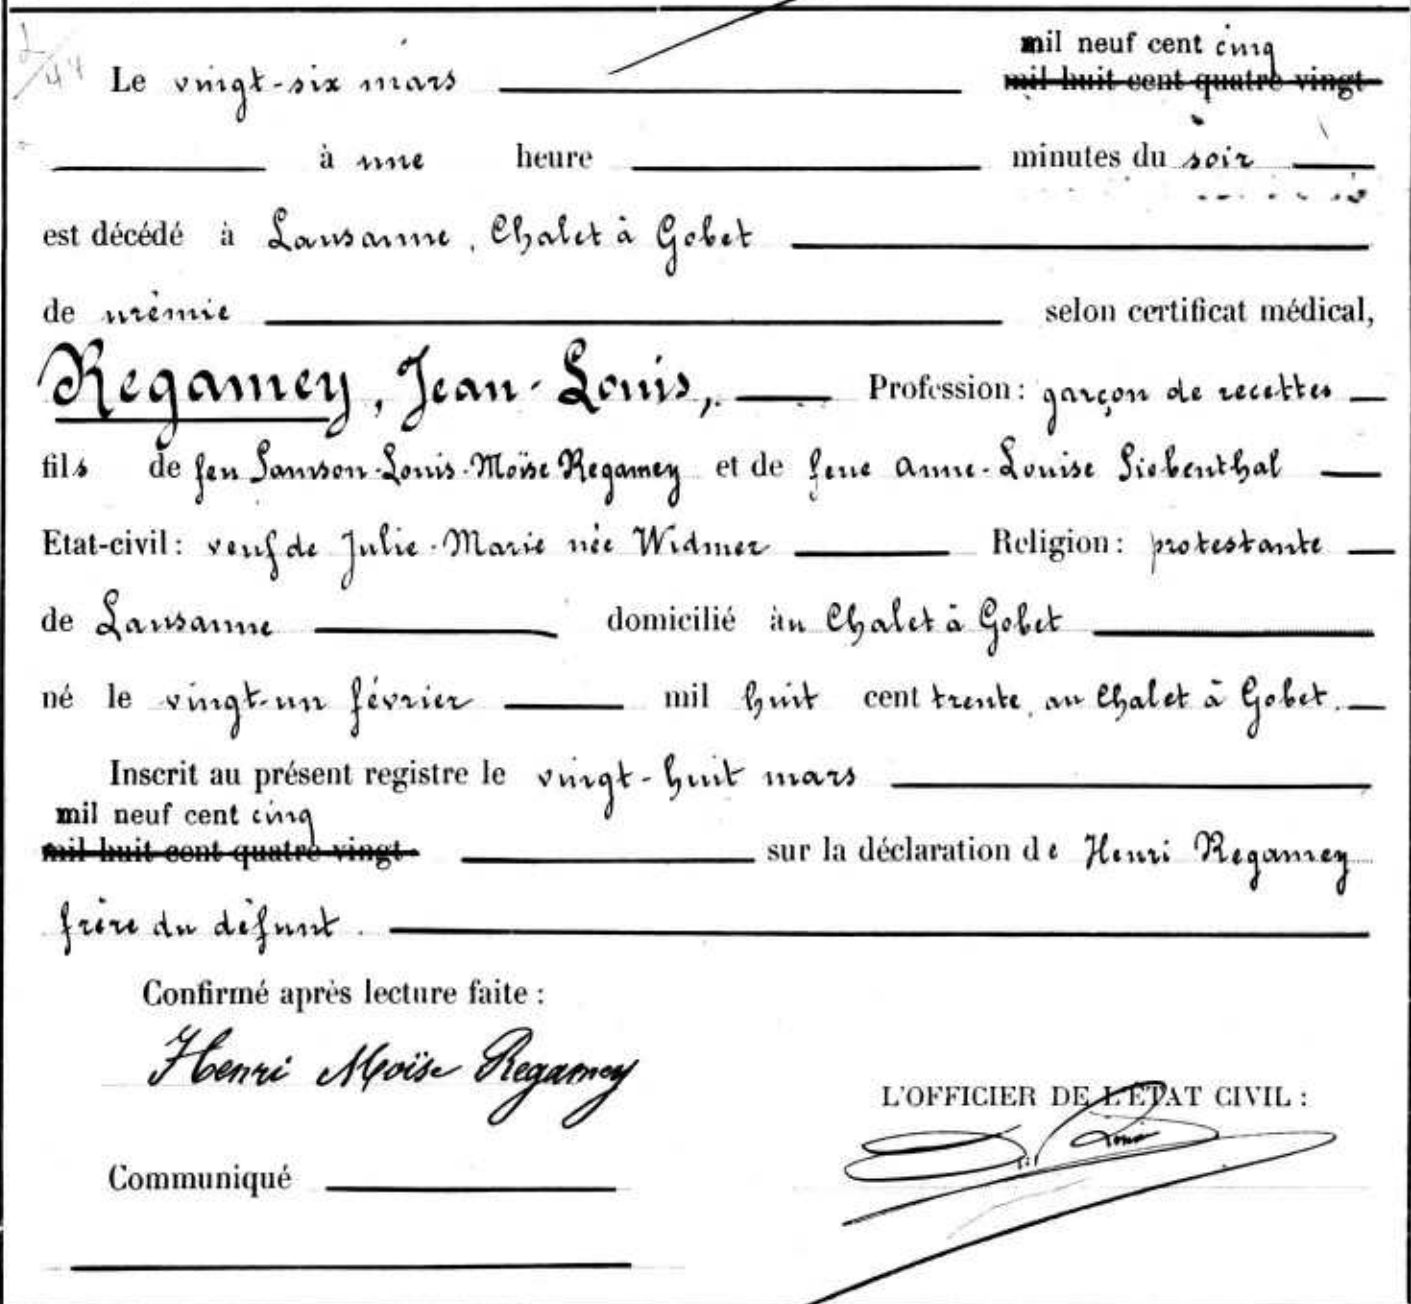 mil neuf cent cinq
Le vingt-six mars mil huit cent quatre vingt
à une heure minutes du soir
est décédé à Lausanne, Chalet à Gobet
de urémie selon certificat médical,
Regamey, Jean-Louis, Profession: garçon de recettes
fils de feu Samson-Louis-Moïse Regamey et de feue Anne-Louise Siebenthal
Etat-civil: veuf de Julie-Marie née Widmer Religion: protestante
de Lausanne domicilié au Chalet à Gobet
né le vingt-un février mil huit cent trente, au Chalet à Gobet.
Inscrit au présent registre le vingt-huit mars
mil neuf cent cinq
mil huit cent quatre vingt sur la déclaration de Henri Regamey
frère du défunt.
Confirmé après lecture faite:
Henri Moïse Regamey
L'OFFICIER DE L'ÉTAT CIVIL:
Communiqué